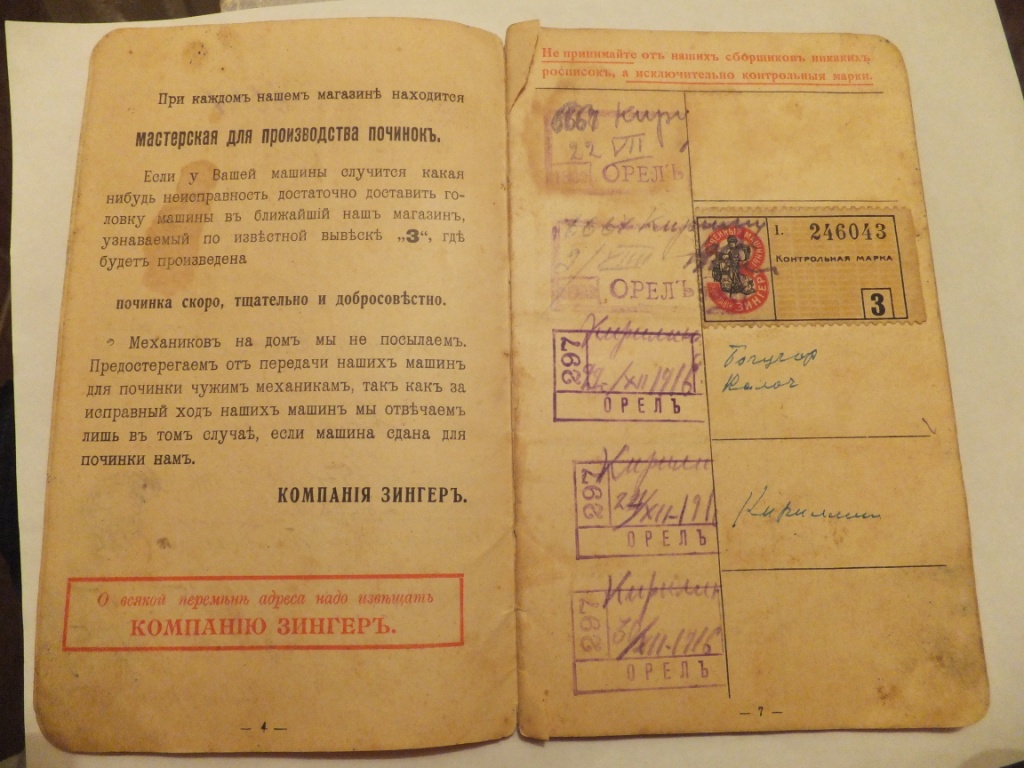 При каждомъ нашемъ магазинѣ находится
мастерская для производства починокъ.
Если у Вашей машины случится какая
нибудь неисправность достаточно доставить го-
ловку машины въ ближайшій нашъ магазинъ,
узнаваемый по извѣстной вывѣскѣ „З“, гдѣ
будетъ произведена
починка скоро, тщательно и добросовѣстно.
Механиковъ на домъ мы не посылаемъ.
Предостерегаемъ отъ передачи нашихъ машинъ
для починки чужимъ механикамъ, такъ какъ за
исправный ходъ нашихъ машинъ мы отвѣчаемъ
лишь въ томъ случаѣ, если машина сдана для
починки намъ.
КОМПАНІЯ ЗИНГЕРЪ.
О всякой перемѣнѣ адреса надо извѣщать
КОМПАНІЮ ЗИНГЕРЪ.
— 4 —
Не принимайте отъ нашихъ сборщиковъ никакихъ
росписокъ, а исключительно контрольныя марки.
22 VII
ОРЕЛЪ
ОРЕЛЪ
I. 246043
КОНТРОЛЬНАЯ МАРКА
ЗИНГЕРЪ
3
297
ОРЕЛЪ
297
ОРЕЛЪ
Кириллин
297
ОРЕЛЪ
— 7 —